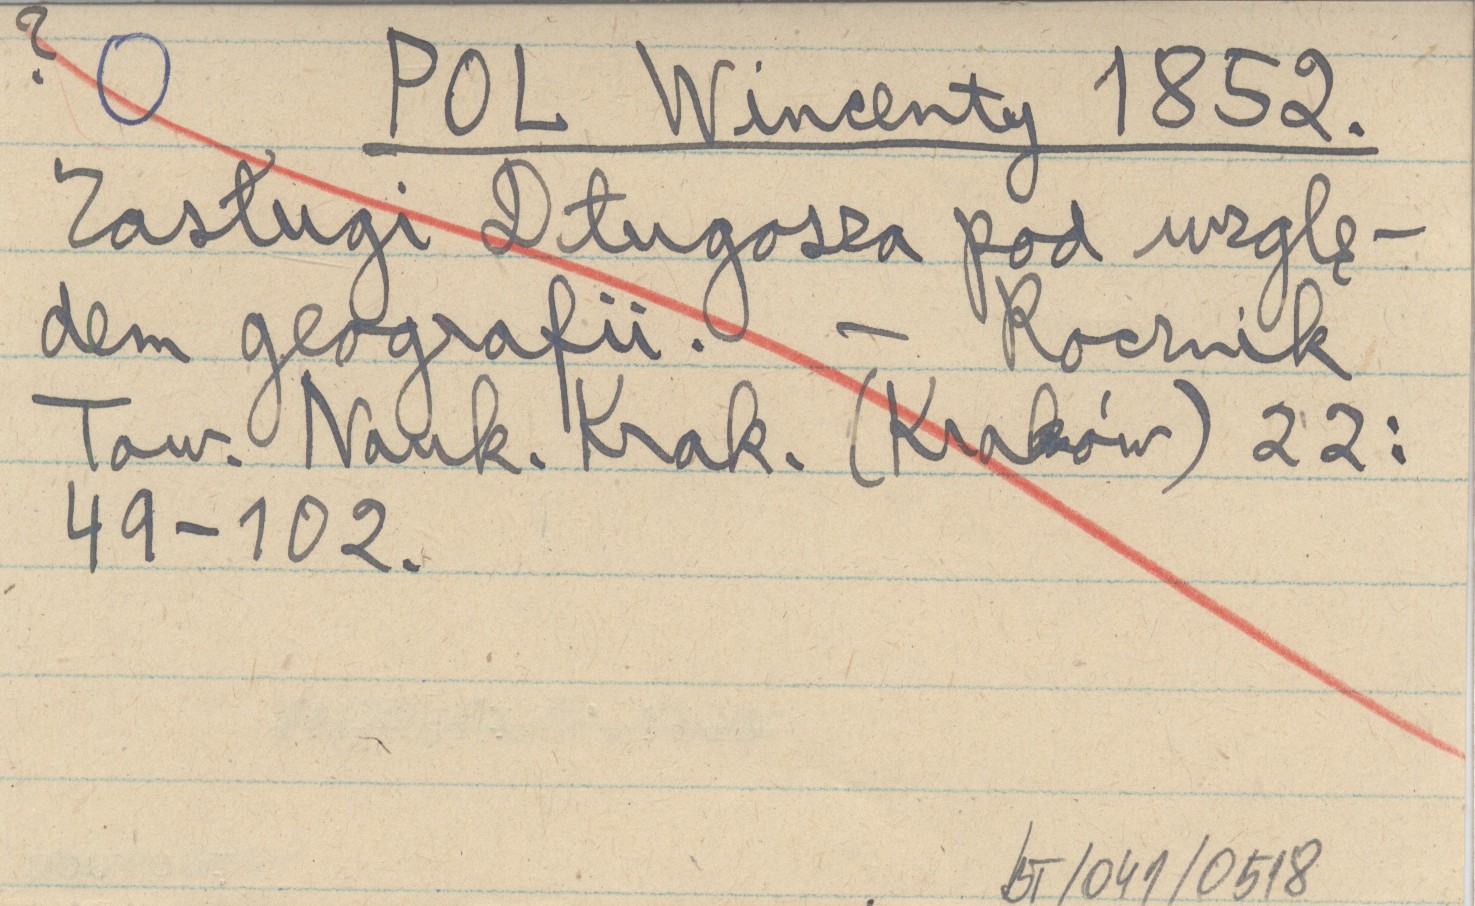 ? O POL Wincenty 1852.
Zasługi Długosza pod wzglę-
dem geografii. – Rocznik
Tow. Nauk. Krak. (Kraków) 22:
49-102.
BT/041/0518